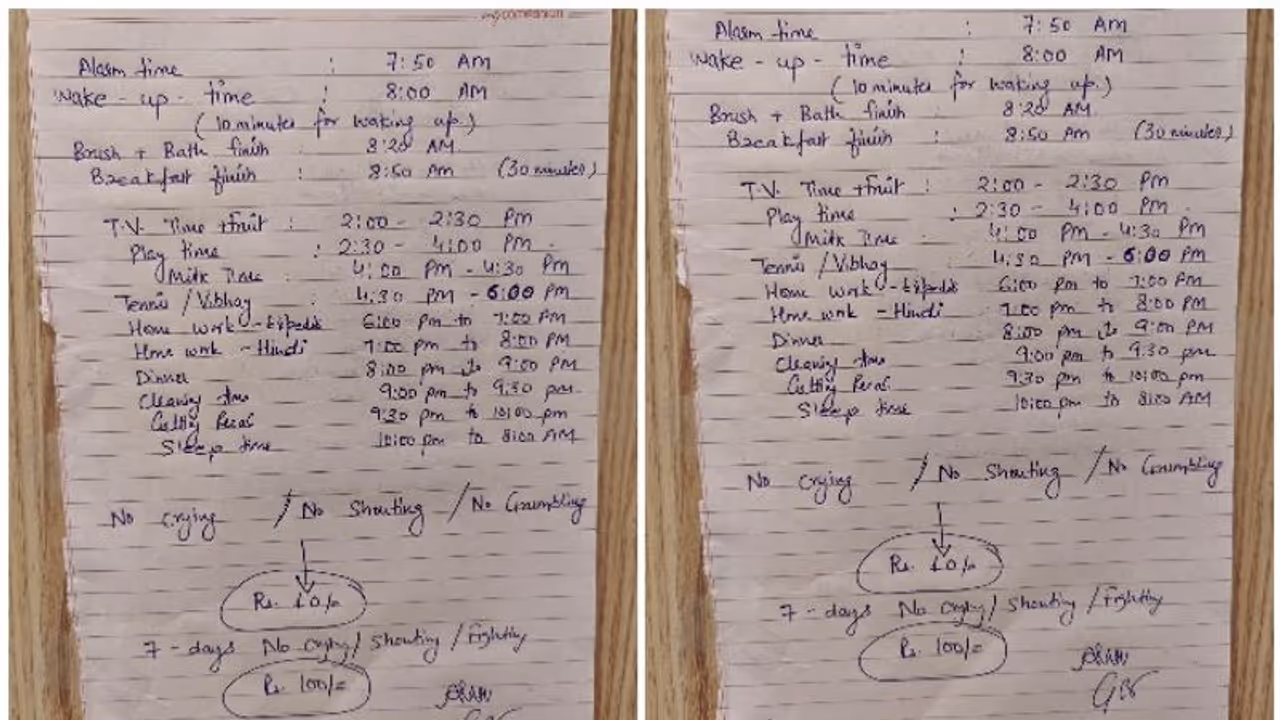 Alarm time : 7:50 AM
Wake - up - time : 8:00 AM
(10 minutes for waking up.)
Brush + Bath finish : 8:20 AM
Breakfast finish : 8:50 Am (30 minutes)
T.V. Time + fruit : 2:00 - 2:30 Pm
Play time : 2:30 - 4:00 Pm
Milk Time : 4:00 Pm - 4:30 Pm
Tennis / Vibhag : 4:30 Pm - 6:00 Pm
Home work - 6:00 pm to 7:00 Pm
Home work - Hindi 7:00 pm to 8:00 Pm
Dinner 8:00 pm to 9:00 Pm
Cleaning time 9:00 pm to 9:30 pm
9:30 pm to 10:00 pm
Sleep time 10:00 pm to 8:00 AM
No crying / No Shouting / No Grumbling
Rs. 10/-
7 - days No crying / Shouting / Fighting
Rs. 100/=
Alarm time : 7:50 AM
Wake - up - time : 8:00 AM
(10 minutes for waking up.)
Brush + Bath finish : 8:20 AM.
Breakfast finish : 8:50 Am (30 minutes)
T.V. Time + fruit : 2:00 - 2:30 Pm
Play time : 2:30 - 4:00 Pm
Milk Time : 4:00 Pm - 4:30 Pm
Tennis / Vibhag : 4:30 Pm - 6:00 Pm
Home work - 6:00 pm to 7:00 Pm
Home work - Hindi 7:00 pm to 8:00 Pm
Dinner 8:00 pm to 9:00 Pm
Cleaning time 9:00 pm to 9:30 pm
9:30 pm to 10:00 pm
Sleep time 10:00 pm to 8:00 AM
No crying / No Shouting / No Grumbling
Rs. 10/-
7 - days No crying / Shouting / Fighting
Rs. 100/=